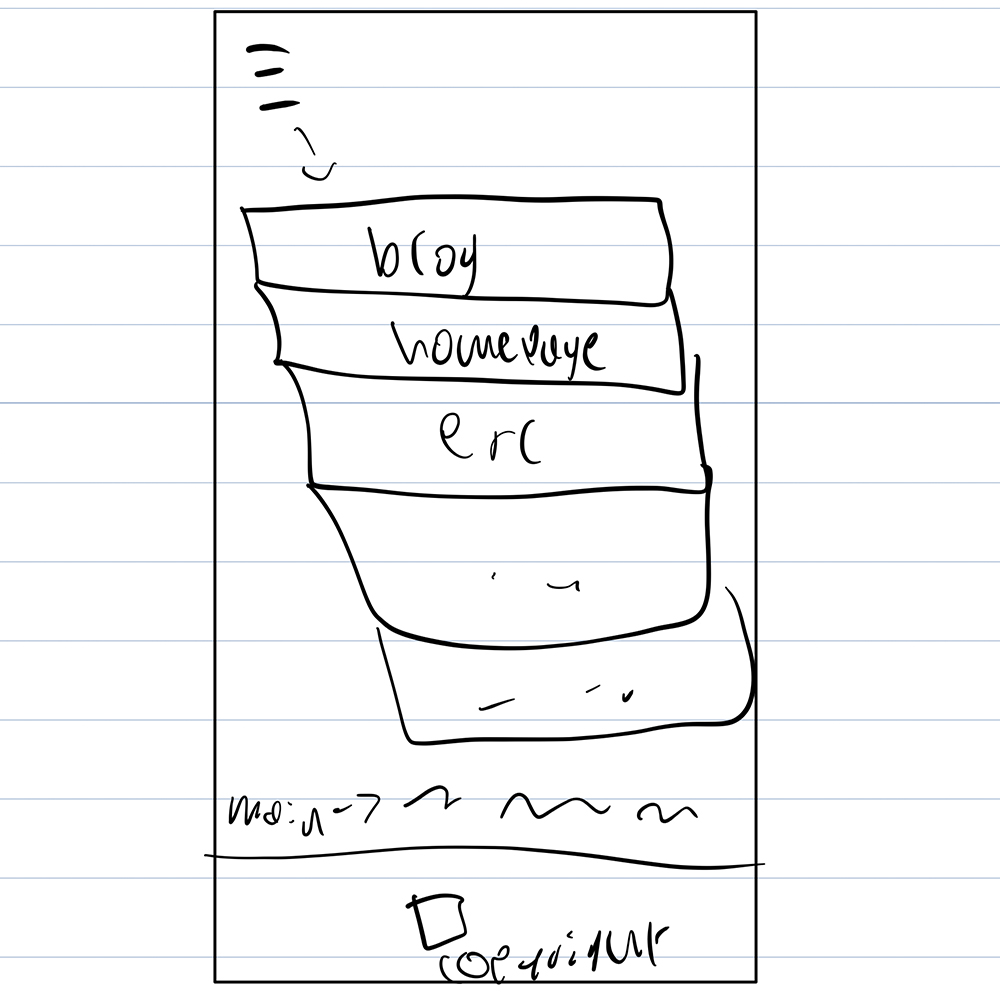 blog
homepage
etc
main->
copyright